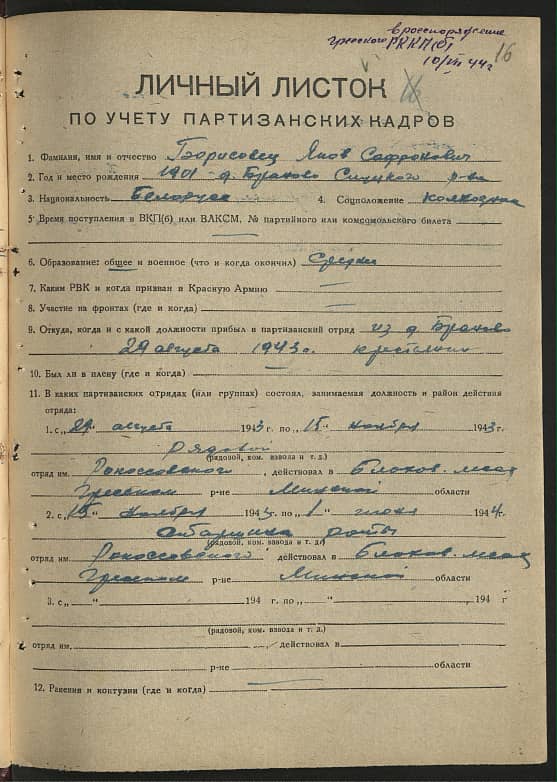 в распоряжение
Гресского РККП(б)
10/VII 44 г
16
ЛИЧНЫЙ ЛИСТОК
ПО УЧЕТУ ПАРТИЗАНСКИХ КАДРОВ
1. Фамилия, имя и отчество Борисовец Яков Сафронович
2. Год и место рождения 1901 д. Браково р-на
3. Национальность Белорус 4. Соцположение колхозник
5. Время поступления в ВКП(б) или ВЛКСМ, № партийного или комсомольского билета
6. Образование: общее и военное (что и когда окончил) Среднее
7. Каким РВК и когда призван в Красную Армию —
8. Участие на фронтах (где и когда) —
9. Откуда, когда и с какой должности прибыл в партизанский отряд из д. Браково
29 августа 1943 г. крестьянин
10. Был ли в плену (где и когда) —
11. В каких партизанских отрядах (или группах) состоял, занимаемая должность и район действия
отряда:
1. с „29“ августа 1943 г. по „15“ ноября 1943 г.
Рядовой
(рядовой, ком. взвода и т. д.)
отряд им. Рокоссовского, действовал в
Гресском р-не Минской области
2. с „15“ ноября 1943 г. по „1“ июля 1944 г.
Старшина роты
(рядовой, ком. взвода и т. д.)
отряд им. Рокоссовского действовал в
Гресском р-не Минской области
3. с „ “ 194 г. по „ “ 194 г
(рядовой, ком. взвода и т. д.)
отряд им. , действовал в
р-не области
12. Ранения и контузии (где и когда) —